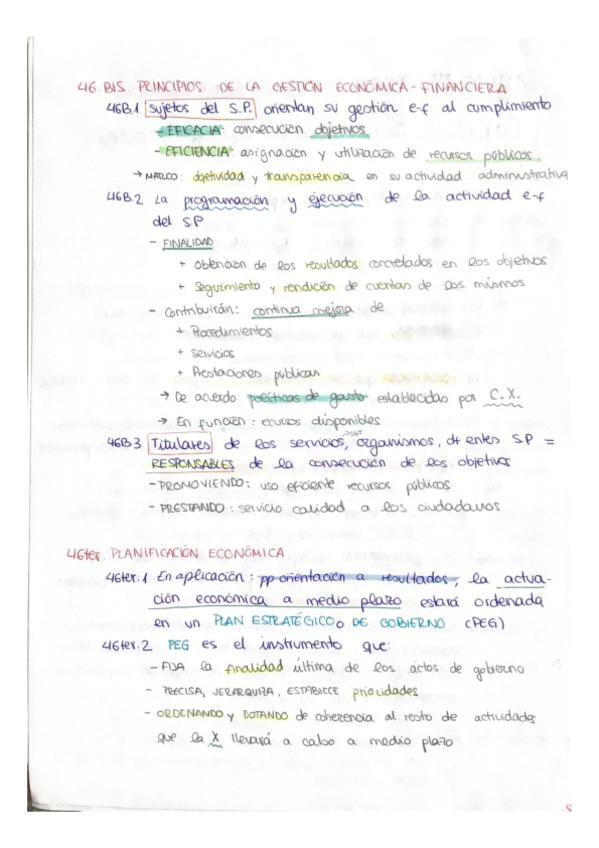 46.BIS. PRINCIPIOS DE LA GESTIÓN ECONÓMICA-FINANCIERA
46B.1 Sujetos del S.P. orientan su gestión e-f al cumplimiento
- EFICACIA: consecución objetivos
- EFICIENCIA: asignación y utilización de recursos públicos.
→ MARCO: objetividad y transparencia en su actividad administrativa
46B.2 La programación y ejecución de la actividad e-f
del SP
- FINALIDAD:
+ Obtención de los resultados concretados en los objetivos
+ Seguimiento y rendición de cuentas de los mismos
- Contribuirán: continua mejora de
+ Procedimientos
+ Servicios
+ Prestaciones públicas
→ De acuerdo políticas de gasto establecidas por C.X.
→ En función: ecursos disponibles
46B.3 Titulares de los servicios, organismos, d+ entes SP =
RESPONSABLES de la consecución de los objetivos
- PROMOVIENDO: uso eficiente recursos públicos
- PRESTANDO: servicio calidad a los ciudadanos
46ter. PLANIFICACIÓN ECONÓMICA
46ter.1 En aplicación: pp orientación a resultados, la actua-
ción económica a medio plazo estará ordenada
en un PLAN ESTRATÉGICO o DE GOBIERNO (PEG)
46ter.2 PEG es el instrumento que:
- FIJA la finalidad última de los actos de gobierno
- PRECISA, JERARQUIZA, ESTABLECE prioridades
- ORDENANDO y DOTANDO de coherencia al resto de actividades
que la X llevará a cabo a medio plazo